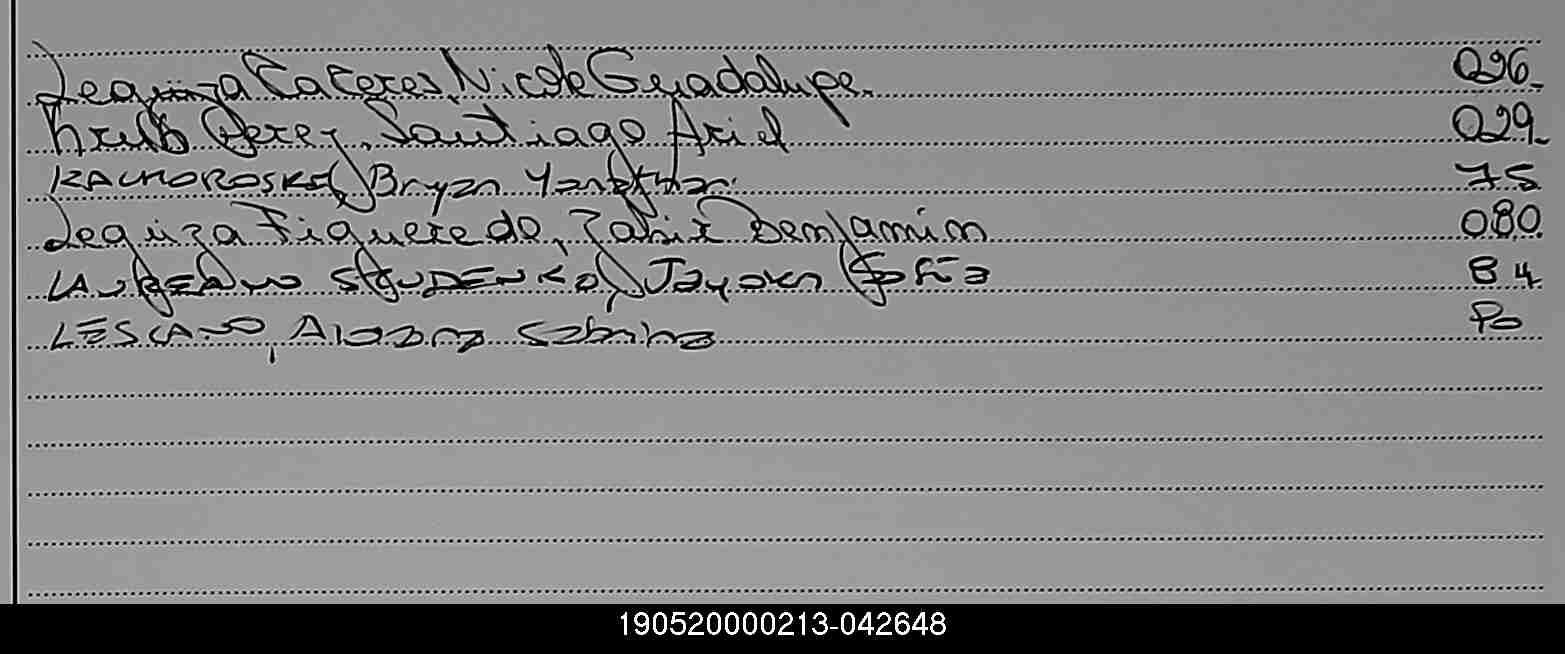 Leguiza Caceres, Nicole Guadalupe. 026.
Krulb Perez, Santiago Ariel 029.
KACHOROSKI, Bryan Yonathan. 75
Leguiza Figueredo, Zahir Benjamin 080.
LAUREANO STUDENKO, Jayden Sofía 84
LESCANO, Aldana Sabrina 90
190520000213-042648